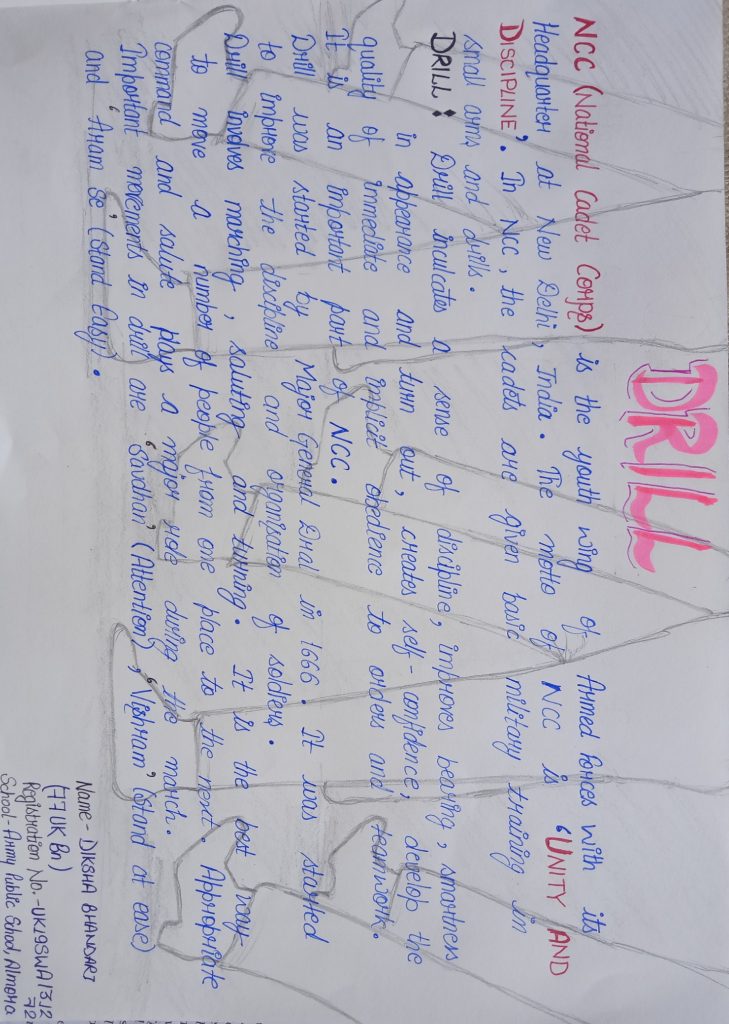 DRILL
NCC (National Cadet Corps) is the youth wing of Armed Forces with its
Headquarter at New Delhi, India. The motto of NCC is 'UNITY AND
DISCIPLINE'. In NCC, the cadets are given basic military training in
small arms and drills.
DRILL: Drill inculcates a sense of discipline, improves bearing, smartness
in appearance and turn out, creates self-confidence, develop the
quality of immediate and implicit obedience to orders and teamwork.
It is an important part of NCC.
Drill was started by Major General Dral in 1666. It was started
to improve the discipline and organisation of soldiers.
Drill involves marching, saluting and turning. It is the best way
to move a number of people from one place to the next. Appropriate
command and salute plays a major role during the march.
Important movements in drill are 'Savdhan' (Attention), 'Vishram' (Stand at ease)
and 'Aram se' (Stand Easy).
Name- DIKSHA BHANDARI
(77 UK Bn)
Registration No.-UK19SWA1312
72
School-Army Public School, Almora